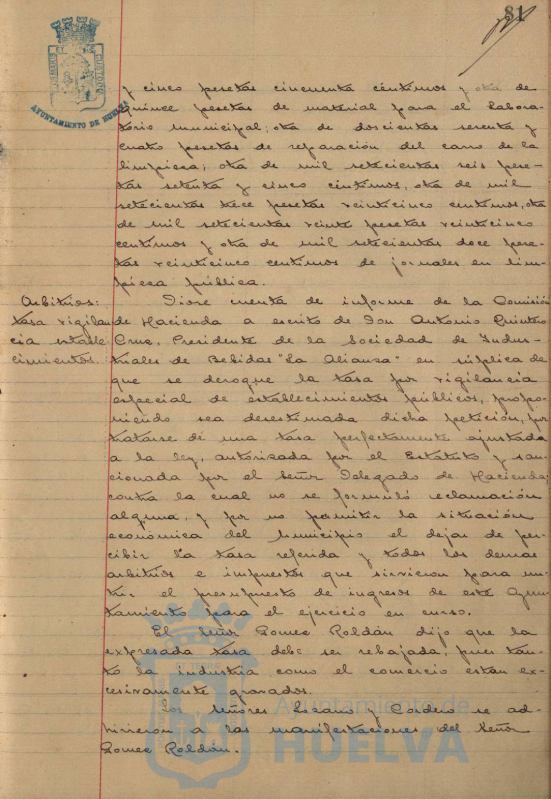 81
AYUNTAMIENTO DE HUELVA
y cinco pesetas cincuenta céntimos y otra de
quince pesetas de material para el labora-
torio municipal; otra de doscientas sesenta y
cuatro pesetas de reparación del carro de la
limpieza; otra de mil setecientas seis pese-
tas setenta y cinco céntimos, otra de mil
setecientas trece pesetas veinticinco céntimos, otra
de mil setecientas veinte pesetas veinticinco
céntimos y otra de mil setecientas doce pese-
tas veinticinco céntimos de jornales en lim-
pieza pública.
Arbitrios:
tasa vigilan
cia estable
cimientos.
Diose cuenta de informe de la Comisión
de Hacienda a escrito de Don Antonio Quintero
Cruz, Presidente de la Sociedad de Indus-
triales de Bebidas "La Alianza" en súplica de
que se derogue la tasa por vigilancia
especial de establecimientos públicos, propo-
niendo sea desestimada dicha petición, por
tratarse de una tasa perfectamente ajustada
a la ley, autorizada por el Estatuto y san-
cionada por el Señor Delegado de Hacienda,
contra la cual no se formuló reclamación
alguna, y por no permitir la situación
económica del municipio el dejar de per-
cibir la tasa referida y todos los demas
arbitrios e impuestos que sirvieron para nu-
trir el presupuesto de ingresos de este Ayun-
tamiento para el ejercicio en curso.
El Señor Gomez Roldán dijo que la
expresada tasa debe ser rebajada, pues tan-
to la industria como el comercio estan ex-
cesivamente gravados.
Los señores Lozano y Cordero se ad-
hirieron a las manifestaciones del Señor
Gomez Roldán.
Ayuntamiento de
HUELVA